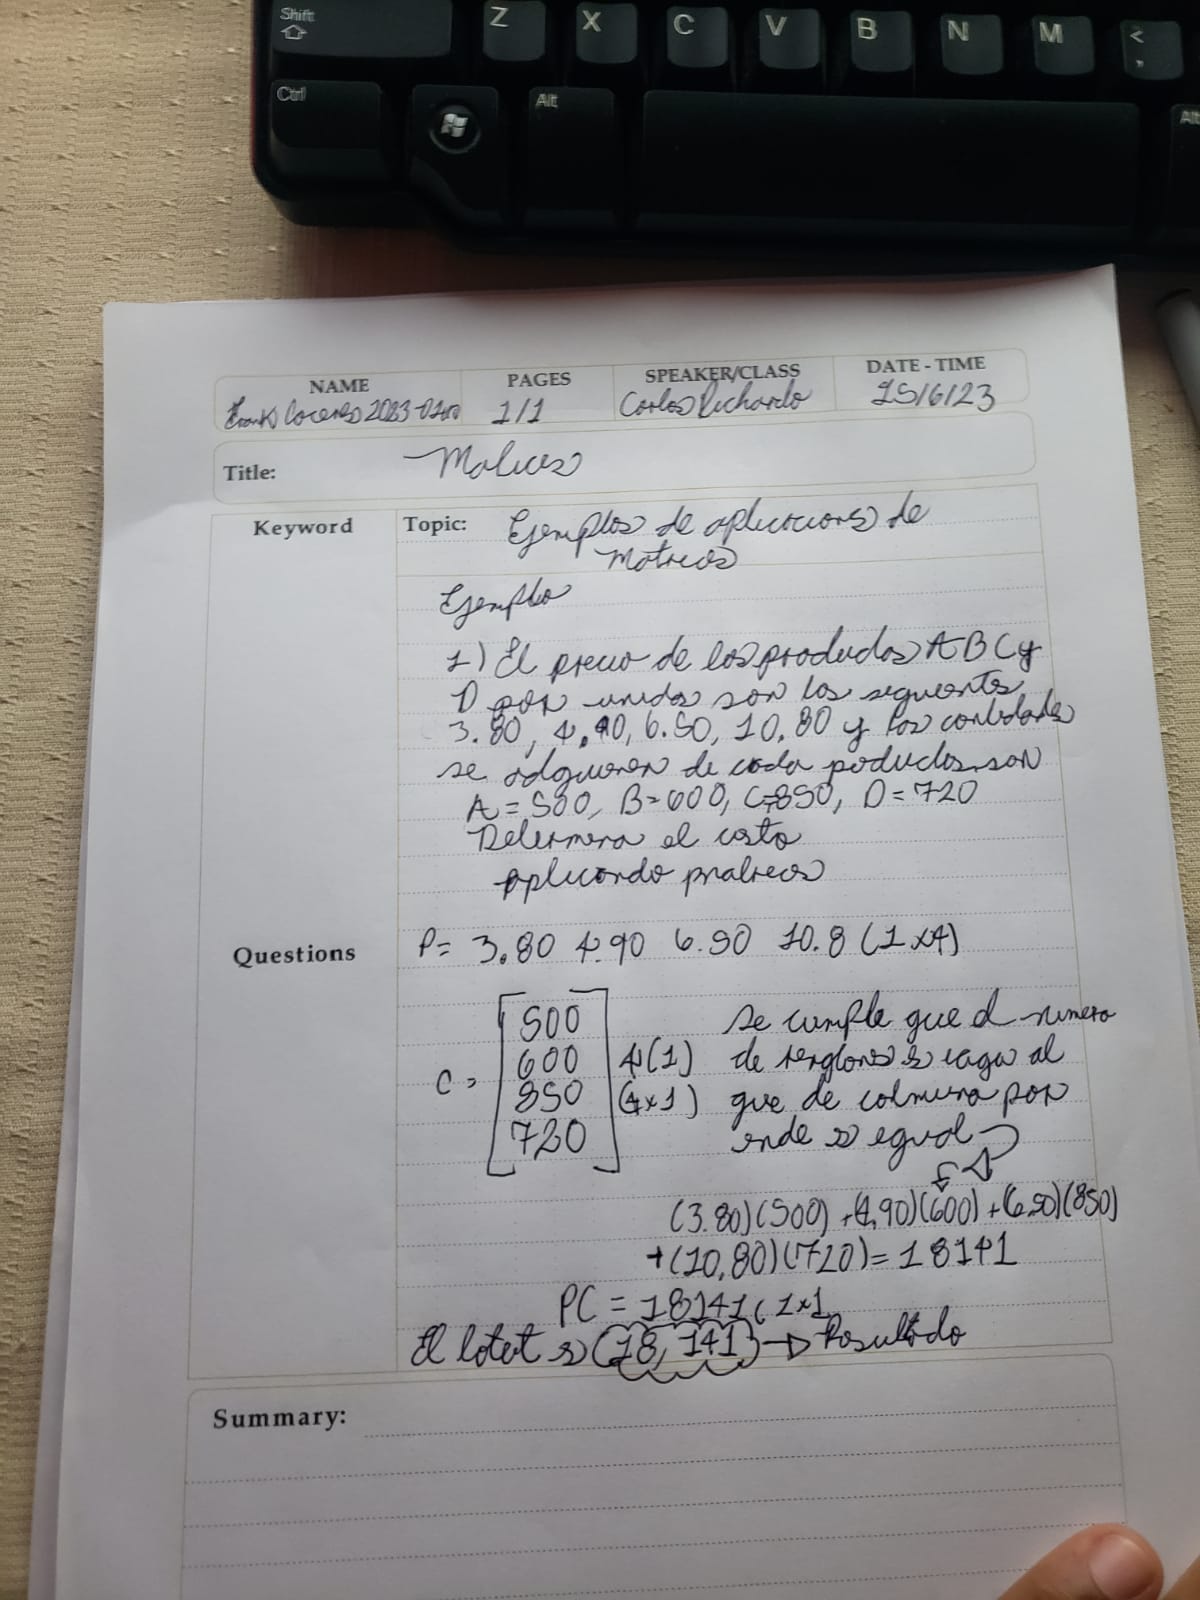 Shift
Z X C V B N M <
,
Ctrl
Alt
Alt
NAME PAGES SPEAKER/CLASS DATE - TIME
1/1 Carlos Pichardo 15/6/23
Title: Matices
Keyword
Topic: Ejemplos de aplicacions de
Matrices
Ejemplo
1) El precio de los productos A B C y
D por unidas son los seguientes
3.80, 4.90, 6.50, 10,80 y las cantidades
se adquieren de cada poductos son
A = 500, B = 600, C = 850, D = 720
Determina el costo
aplicando matrices
Questions
P = 3.80 4.90 6.90 10.8 (1x4)
C =
500
600
850
720
4(1)
(4x1)
se cumple que el numero
de renglones es
al
que de colmuna por
ende es egual
(3.80)(500) + (4,90)(600) + (6.50)(850)
+ (10,80)(720) = 18141
PC = 18141 ( 1x1
El es (18,141) → Resultado
Summary: